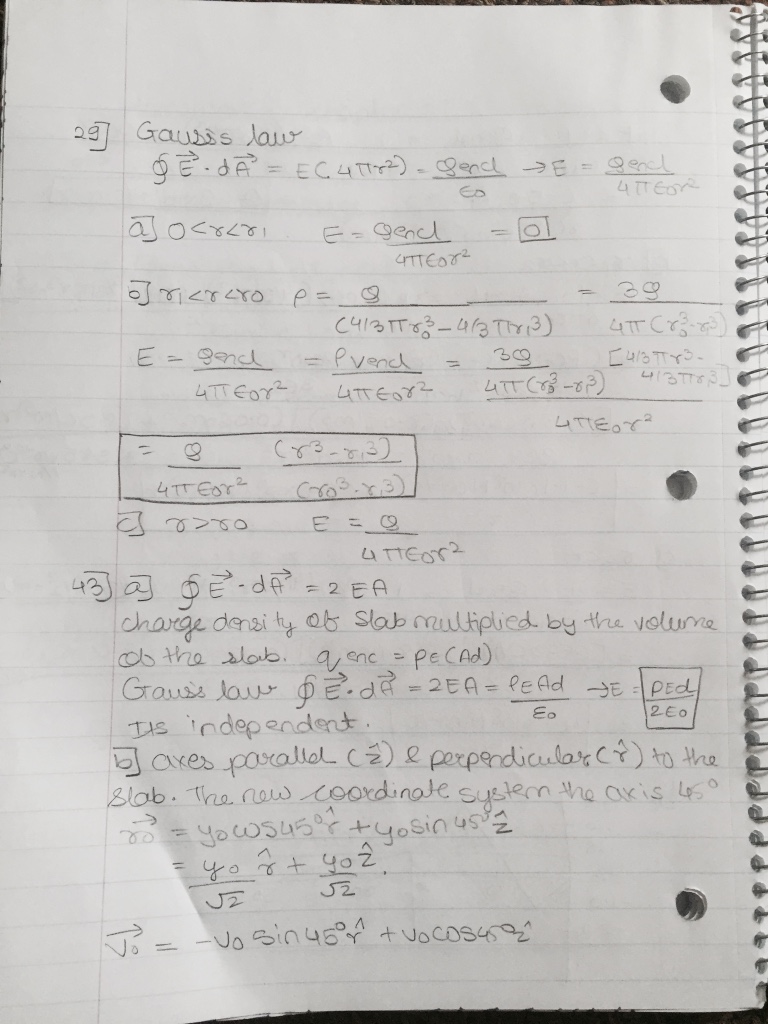 29] Gauss's law
∮ E⃗ · dA⃗ = E(4πr²) = Qencl/ε0 → E = Qencl/4πε0r²
a] 0<r<r1 E = Qencl/4πε0r² = 0
b] r1<r<r0 ρ = Q/(4/3πr0³ – 4/3πr1³) = 3Q/4π(r0³-r1³)
E = Qencl/4πε0r² = ρVencl/4πε0r² = 3Q/4π(r0³-r1³) [4/3πr³ - 4/3πr1³]/4πε0r²
= Q/4πε0r² (r³-r1³)/(r0³-r1³)
c] r>r0 E = Q/4πε0r²
43] a] ∮ E⃗ · dA⃗ = 2EA
charge density of slab multiplied by the volume
of the slab. qenc = ρE(Ad)
Gauss law ∮ E⃗ · dA⃗ = 2EA = ρEAd/ε0 → E = ρEd/2ε0
Its independent.
b] axes parallel (ẑ) & perpendicular (r̂) to the
slab. The new coordinate system the axis 45°
r⃗0 = y0cos45° r̂ + y0sin45° ẑ
= y0/√2 r̂ + y0/√2 ẑ.
v⃗0 = -v0 sin45° r̂ + v0cos45° ẑ